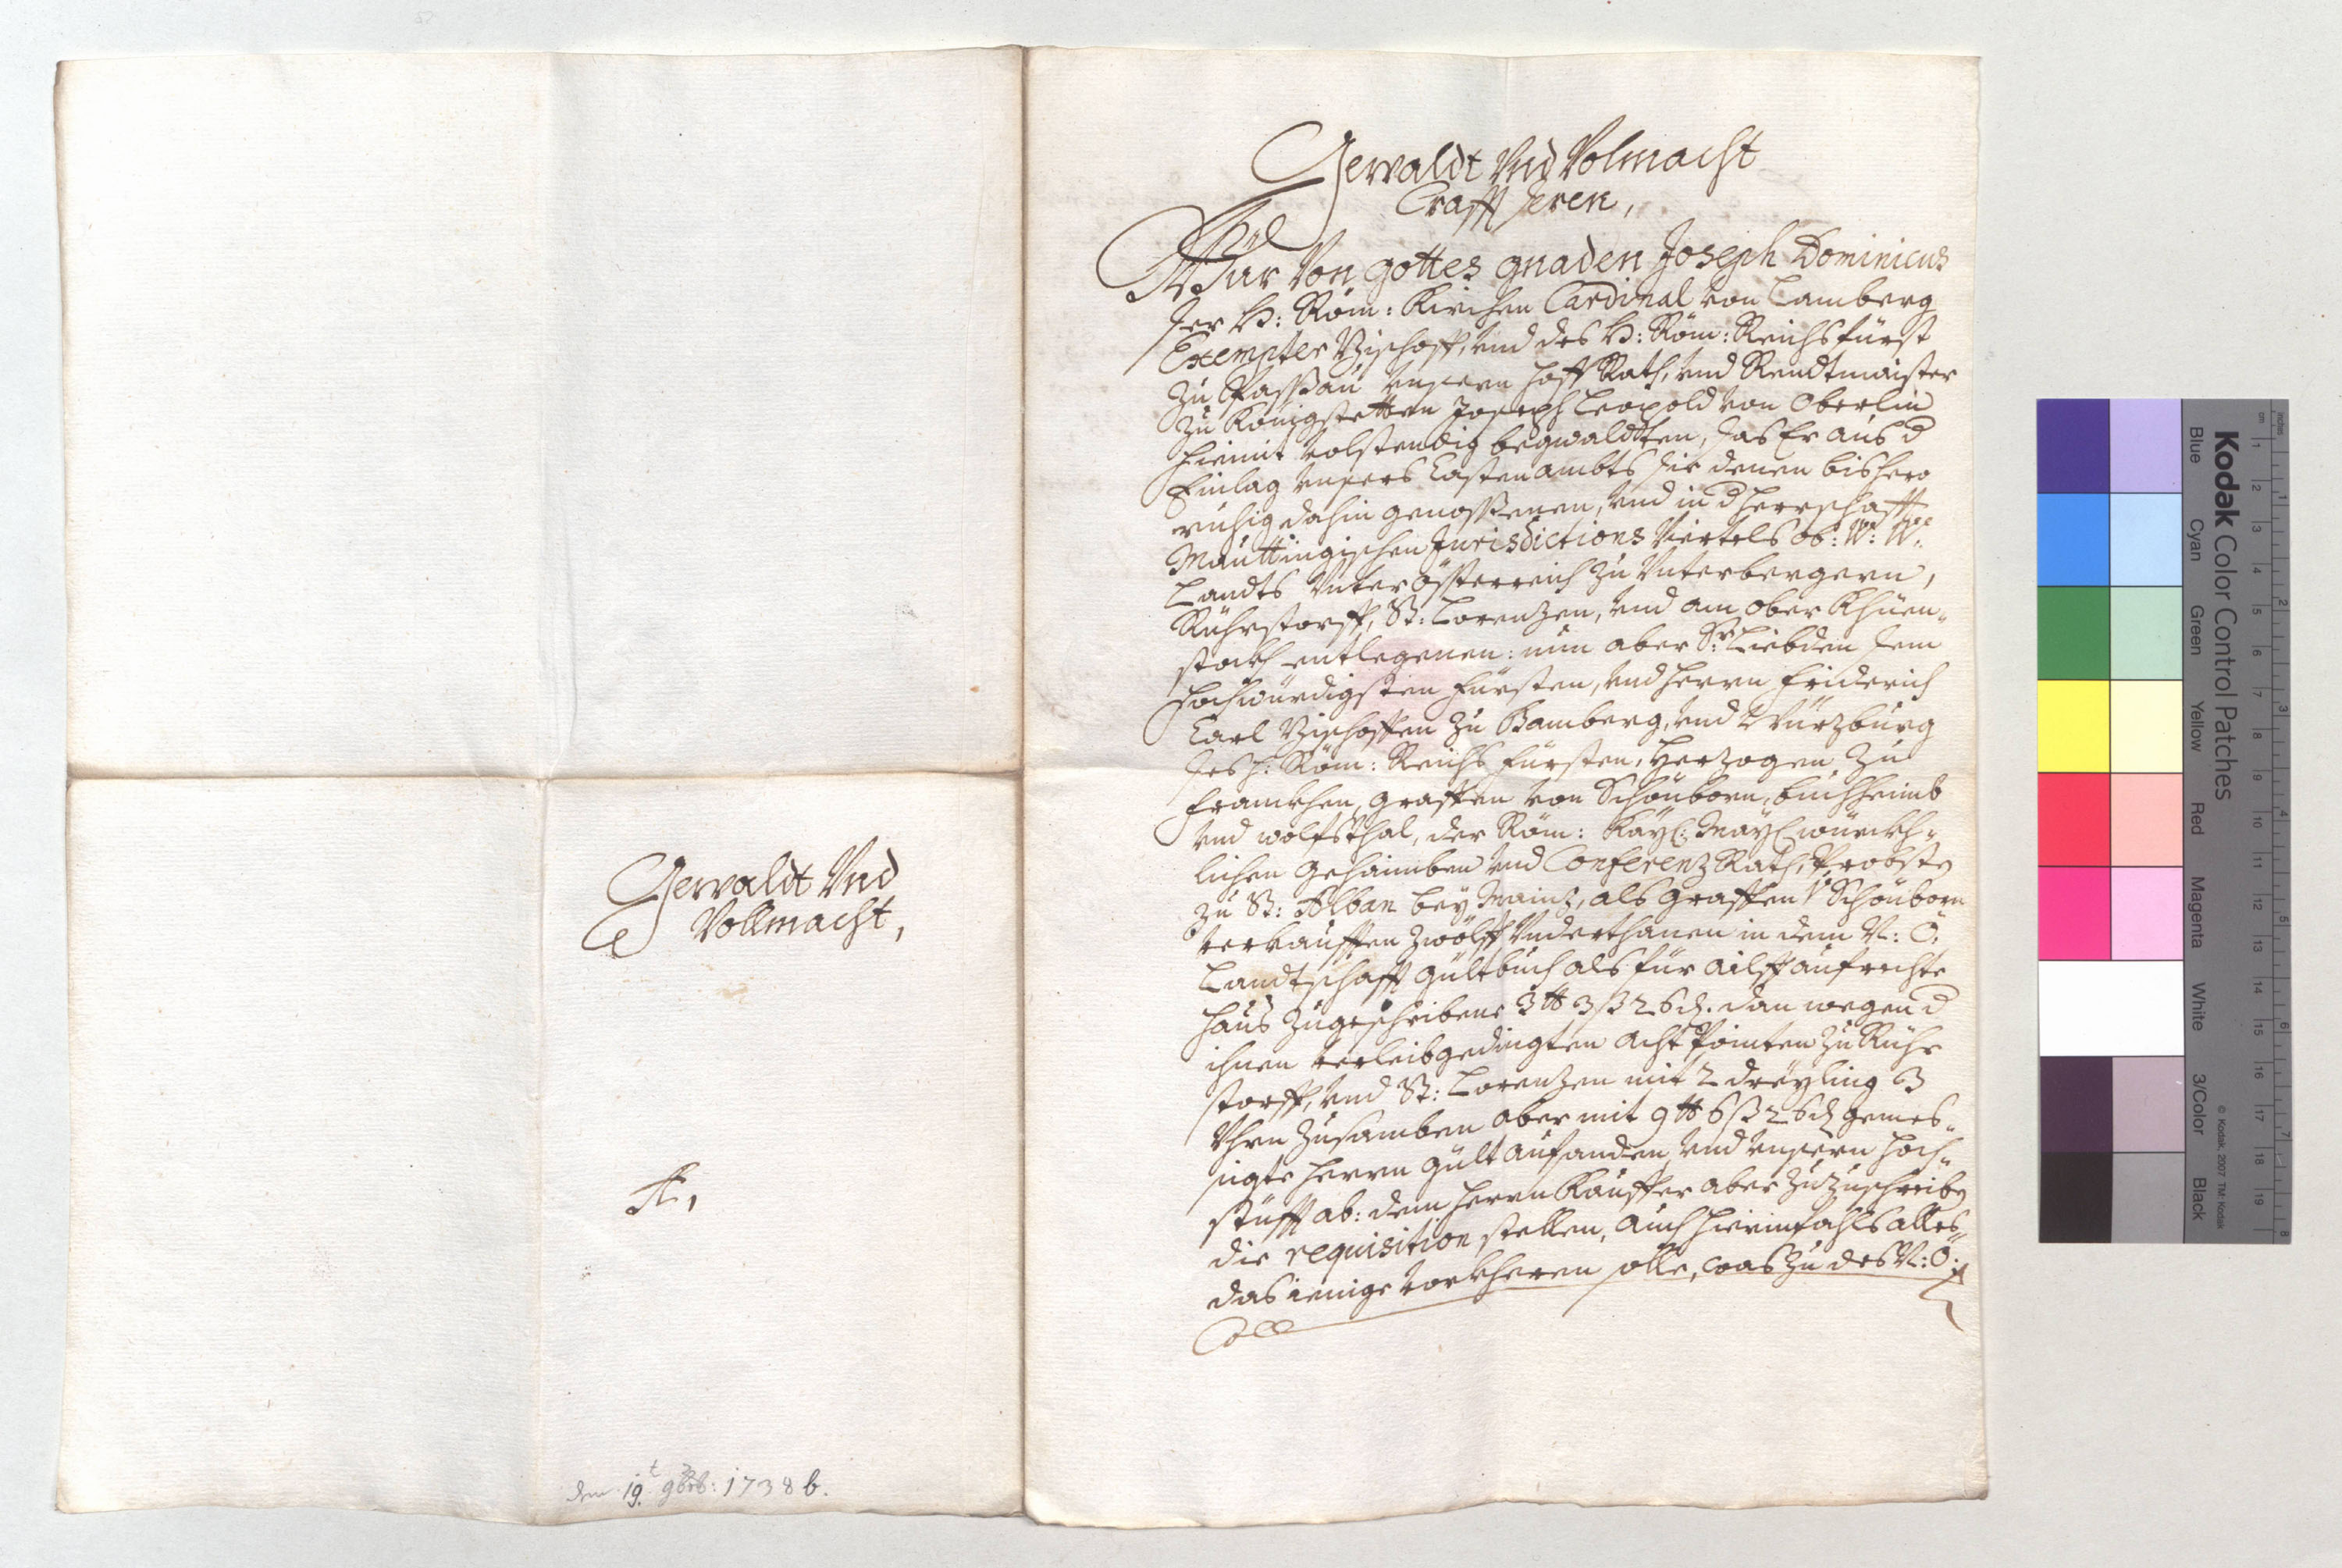 Gewaldt Vnd
Vollmacht,
A,
den 19t 9brb: 1738 b.
Gewaldt Vnd Volmacht
Crafft deren,
Wür Von gottes gnaden Joseph Dominicus
der H: Röm: Kirchen Cardinal von Lamberg
Exempter Bischoff, und des H: Röm: Reichs fürst
zu Passau unsern hoff Rath, und Rendtmaister
zu Königstetten Joseph Leopold von Oberlin
hiemit volstendig begwaldten, das Er aus d
Einlag unsers Castenambts die denen bishero
ruhig dahin genossenen, und in d herrschafft
Mauttingischen Jurisdictions Viertels ob: W: W:
Landts Unter Össterreich zu Unterbergern,
Rührstorff, St: Lorenzen, und am ober Khüen-
stockh entlegenen: nun aber Sr: Liebden dem
hochwürdigsten fürsten, und herrn friderich
Carl Bischoffen zu Bamberg, und Würzburg
des h: Röm: Reichs fürsten, Herzogen zu
franckhen, graffen von Schönborn, buchheimb
und wolfsthal, der Röm: Kayl: May: würckh-
lichen gehaimben und Conferenz Rath, Probsten
zu St: Alban bey Mainz, als graffen v Schönborn
verkaufften zwölff Underthanen in dem N: Ö:
Landtschafft gültbuch als für ailff aufrechte
haus zugeschribene 3 ℔ 3 ß 26 d. dan wegen d
ihnen verleibgedingten acht Pointen zu Rühr
storff, und St: Lorenzen mit 2 dreyling 3
Uhrn zusamben aber mit 9 ℔ 6 ß 26 d gemes-
sigte herrn gült aufsanden, und unsern hoch-
stüfft ab: dem herrn Kauffer aber zuzuschreiben
die requisition stellen, auch hierinfahls alles
das ienige vorkheren solle, was zu des N: Ö: